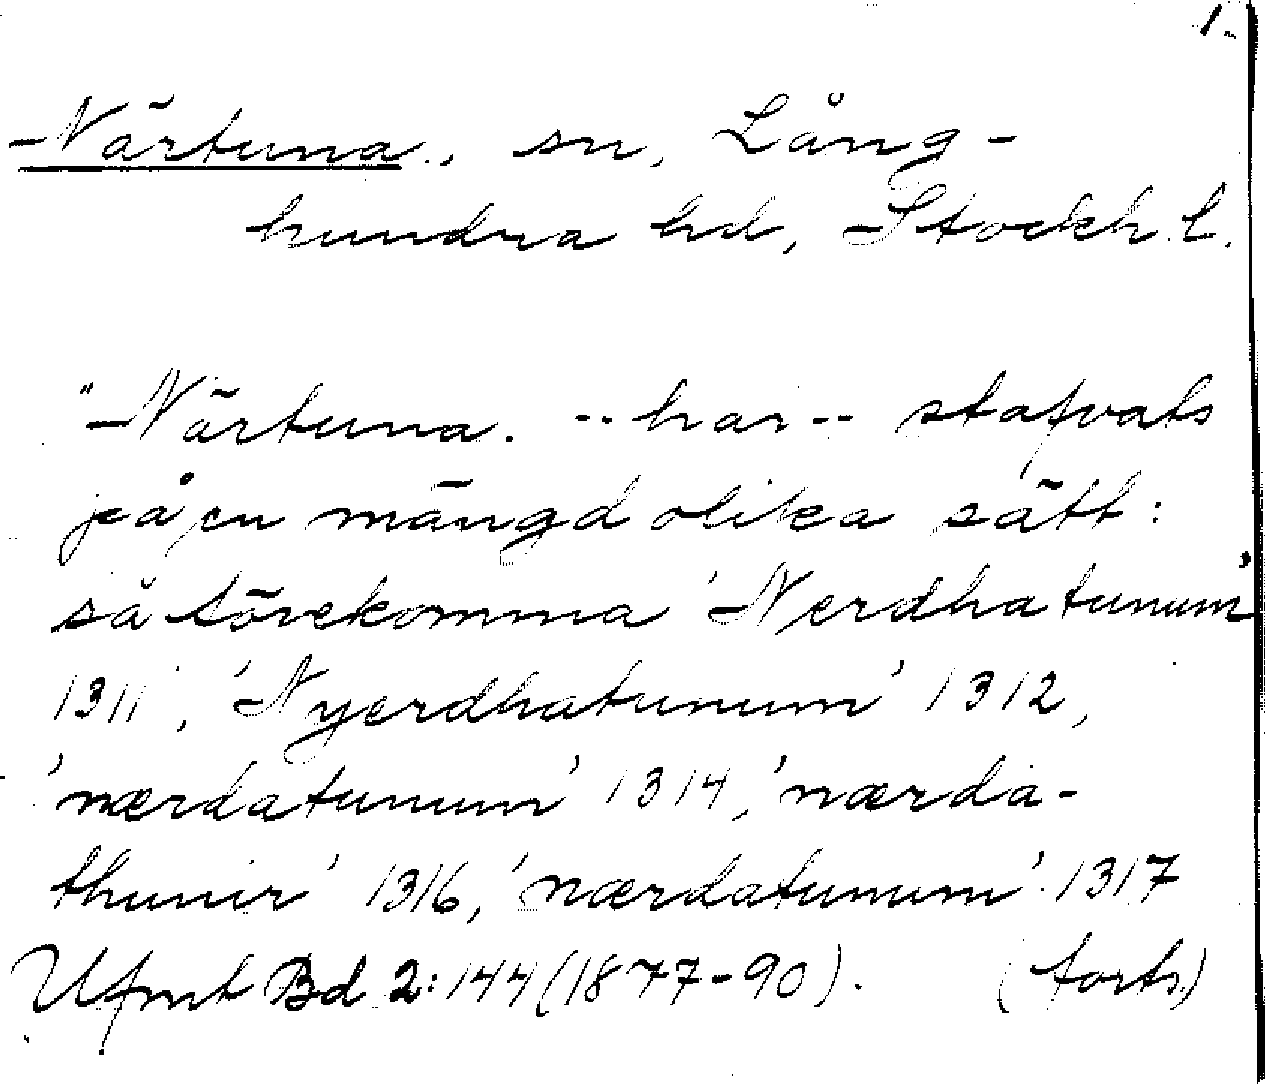 1.
Närtuna., sn, Lång-
hundra hd, Stockh. l.
"Närtuna. -- har -- stafvats
på en mängd olika sätt:
så förekomma 'Nerdhatunum'
1311, 'Nyerdhatunum' 1312,
'nærdatunum' 1314, 'nærda-
thunir' 1316, 'nærdatunum' 1317
Ufmt Bd 2:144 (1877-90). (forts.)